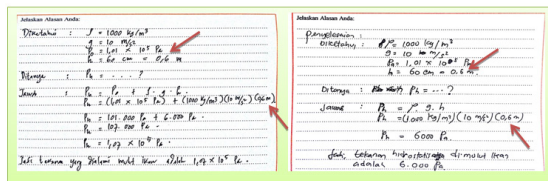 Jelaskan Alasan Anda:
Diketahui : ρ = 1000 kg/m³
g = 10 m/s²
P₀ = 1,01 × 10⁵ Pa
h = 60 cm = 0,6 m
Ditanya : Ph = . . . ?
Jawab : Ph = P₀ + ρ . g . h.
Ph = (1,01 × 10⁵ Pa) + (1000 kg/m³)(10 m/s²)(0,6 m)
Ph = 101.000 Pa + 6.000 Pa.
Ph = 107.000 Pa.
Ph = 1,07 × 10⁵ Pa.
Jadi tekanan yang dialami mulut ikan adalah 1,07 × 10⁵ Pa.
Jelaskan Alasan Anda:
Penyelesaian :
Diketahui, ρ = 1000 kg/m³
g = 10 m/s²
P₀ = 1,01 × 10⁵ Pa
h = 60 cm = 0,6 m
Ditanya : Ph = ... ?
Jawab : Ph = ρ. g. h
Ph = (1000 kg/m³) (10 m/s²) (0,6 m)
Ph = 6000 Pa.
Jadi, tekanan hidrostatis dimulut ikan
adalah 6.000 Pa.